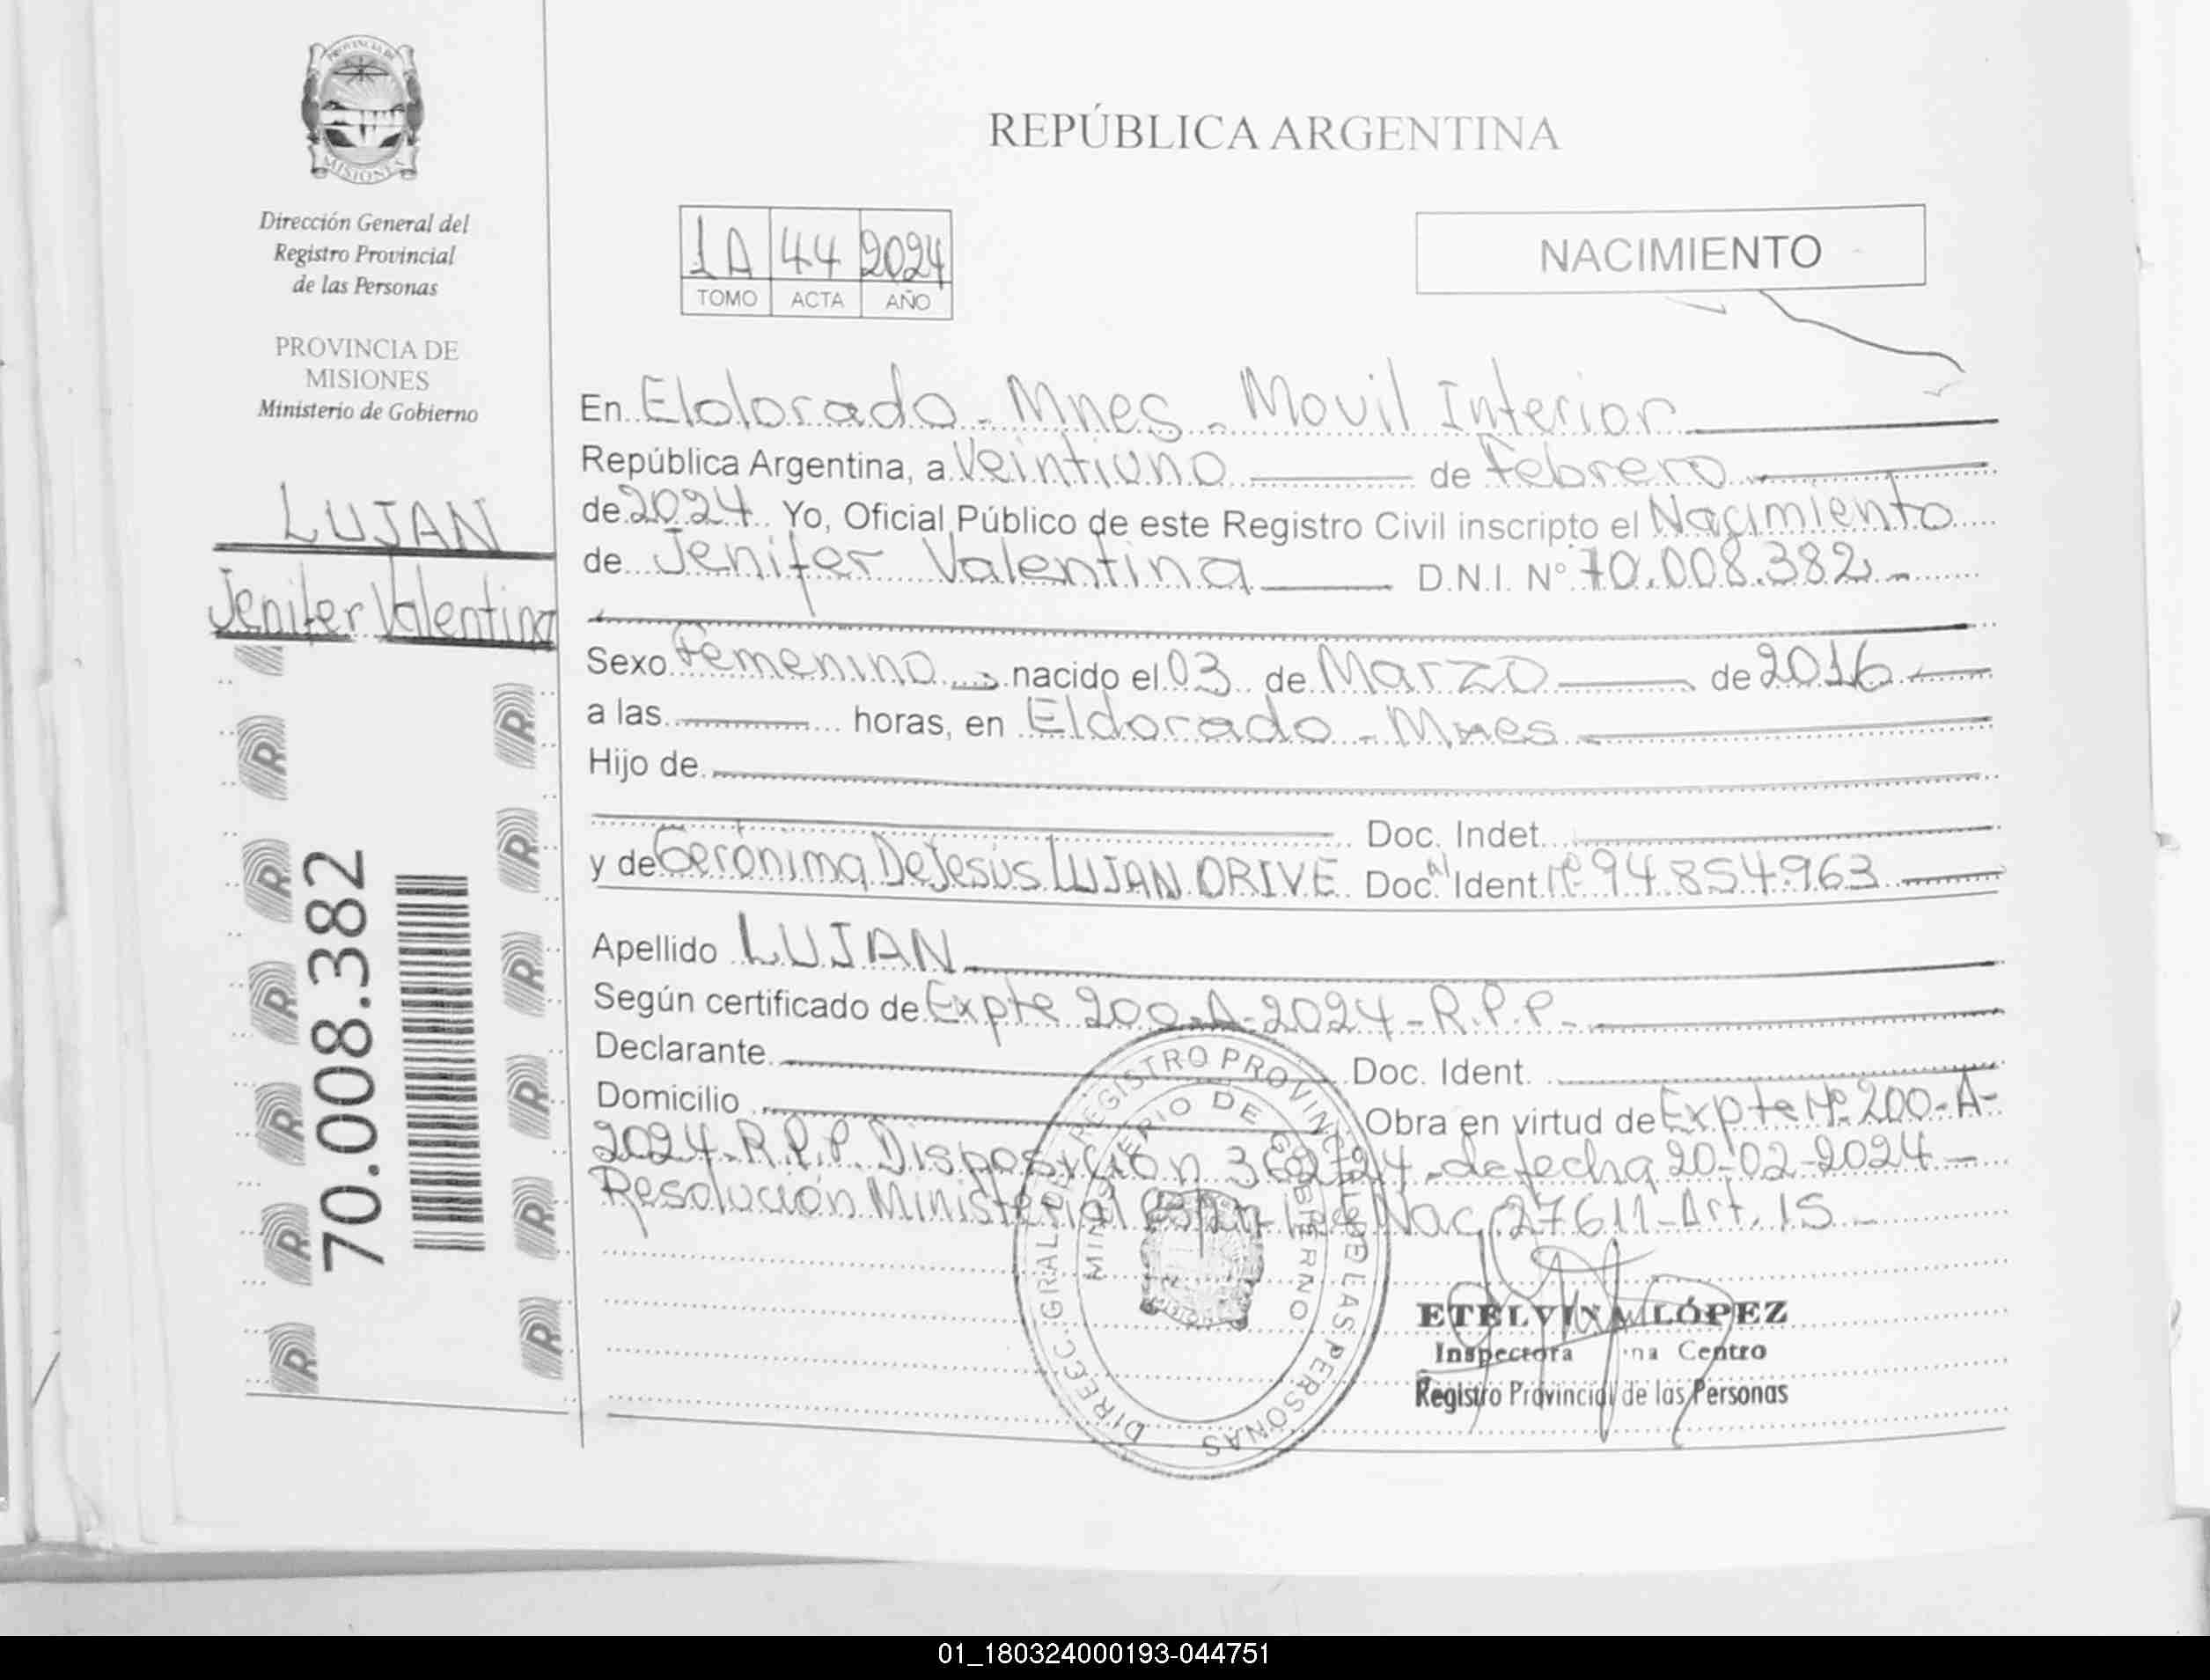 PROVINCIA DE
MISIONES
Dirección General del
Registro Provincial
de las Personas
PROVINCIA DE
MISIONES
Ministerio de Gobierno
LUJAN
Jenifer Valentina
70.008.382
REPÚBLICA ARGENTINA
1A 44 2024
TOMO ACTA AÑO
NACIMIENTO
En Eldorado - Mnes - Movil Interior
República Argentina, a Veintiuno de Febrero
de 2024 Yo, Oficial Público de este Registro Civil inscripto el Nacimiento
de Jenifer Valentina D.N.I. Nº 70.008.382 -
Sexo Femenino nacido el 03 de Marzo de 2016
a las horas, en Eldorado - Mnes
Hijo de
Doc. Indet.
y de Gerónima De Jesús LUJAN ORIVE Doc. Ident. Nº 94.854.963
Apellido LUJAN
Según certificado de Expte 200-A-2024-R.P.P-
Declarante Doc. Ident.
Domicilio Obra en virtud de Expte Nº 200-A-
2024-R.P.P. Disposición de fecha 20-02-2024-
Resolución Ministerial Nac. 27611-Art. 15-
DIRECC. GRAL. DEL REGISTRO PROVINCIAL DE LAS PERSONAS
MINISTERIO DE GOBIERNO
ETELVINA LÓPEZ
Inspectora Centro
Registro Provincial de las Personas
01_180324000193-044751